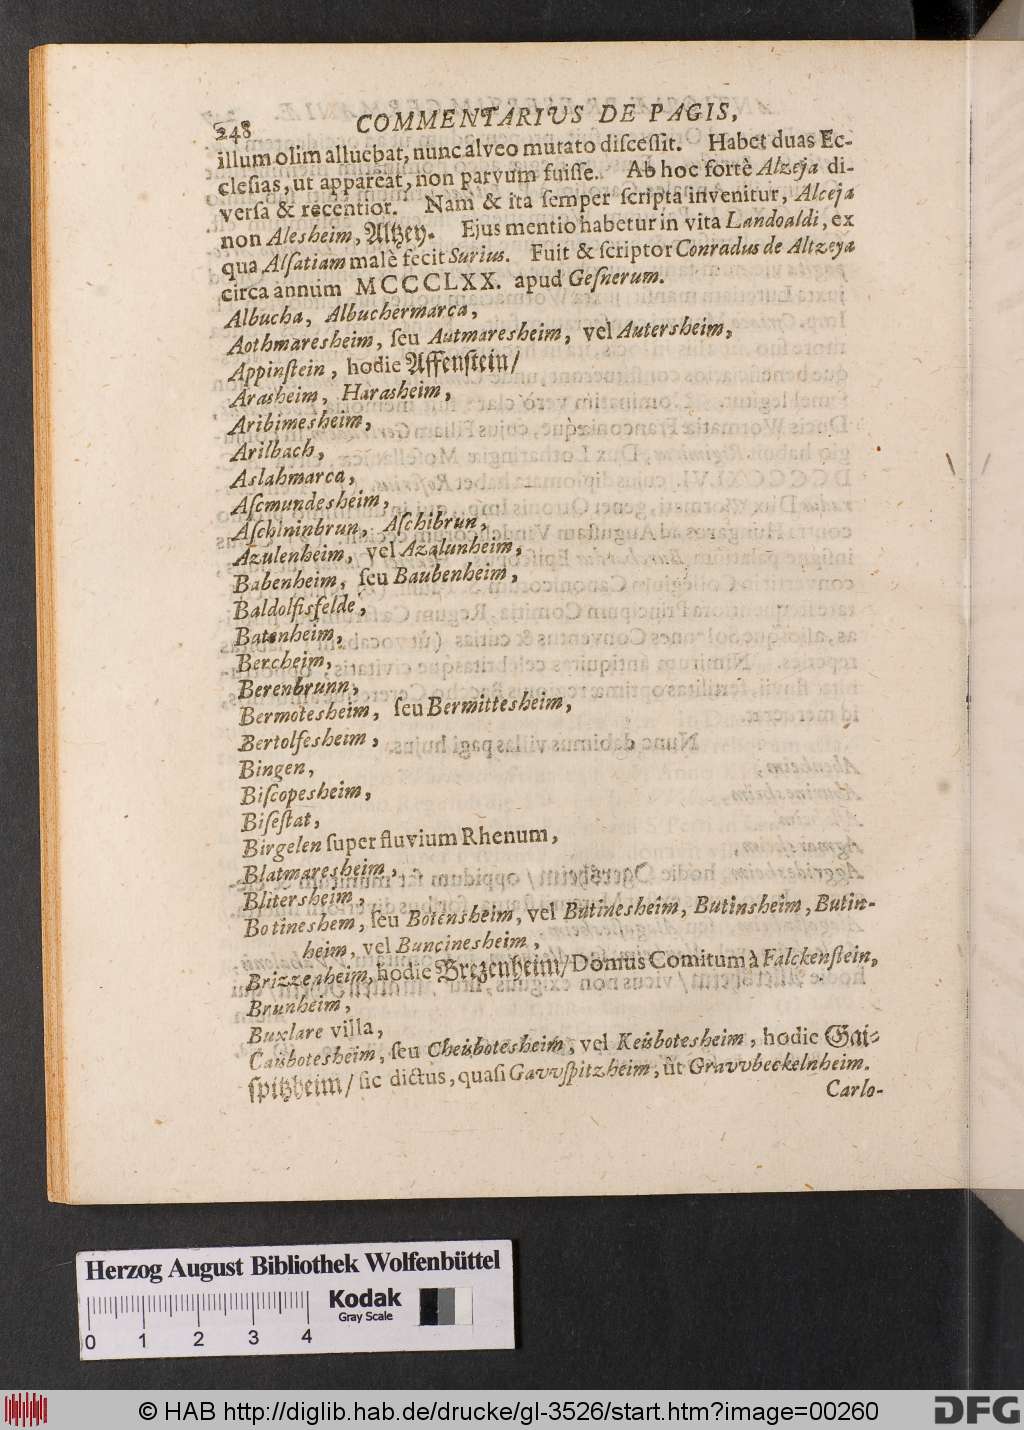 248 COMMENTARIUS DE PAGIS,
illum olim alluebat, nunc alveo mutato diſceſſit. Habet duas Ec-
cleſias, ut appareat, non parvum fuiſſe. Ab hoc fortè Alzeja di-
verſa & recentior. Nam & ita ſemper ſcripta invenitur, Alceja
non Alesheim, Altzey. Ejus mentio habetur in vita Landoaldi, ex
qua Alſatiam malè fecit Surius. Fuit & ſcriptor Conradus de Altzeya
circa annum MCCCLXX. apud Geſnerum.
Albucha, Albuchermarca,
Aothmaresheim, ſeu Autmaresheim, vel Autersheim,
Appinſtein, hodie Affenſtein/
Arasheim, Harasheim,
Aribimesheim,
Arilbach,
Aslahmarca,
Aſcmundesheim,
Aſchininbrun, Aſchibrun,
Azulenheim, vel Azalunheim,
Babenheim, ſeu Baubenheim,
Baldolfisfelde,
Batenheim,
Bercheim,
Berenbrunn,
Bermotesheim, ſeu Bermittesheim,
Bertolfesheim,
Bingen,
Biſcopesheim,
Biſeſtat,
Birgelen ſuper fluvium Rhenum,
Blatmaresheim,
Blitersheim,
Botineshem, ſeu Botensheim, vel Butinesheim, Butinsheim, Butin-
heim, vel Buncinesheim,
Brizzenheim, hodie Brezenheim/ Domus Comitum à Falckenſtein,
Brunheim,
Buxlare villa,
Caüsbotesheim, ſeu Cheüsbotesheim, vel Keüsbotesheim, hodie Gai-
ſpitzheim/ ſic dictus, quaſi Gavvſpitzheim, ùt Gravvbeckelnheim.
Carlo-
Herzog August Bibliothek Wolfenbüttel
Kodak
Gray Scale
0 1 2 3 4
© HAB http://diglib.hab.de/drucke/gl-3526/start.htm?image=00260
DFG